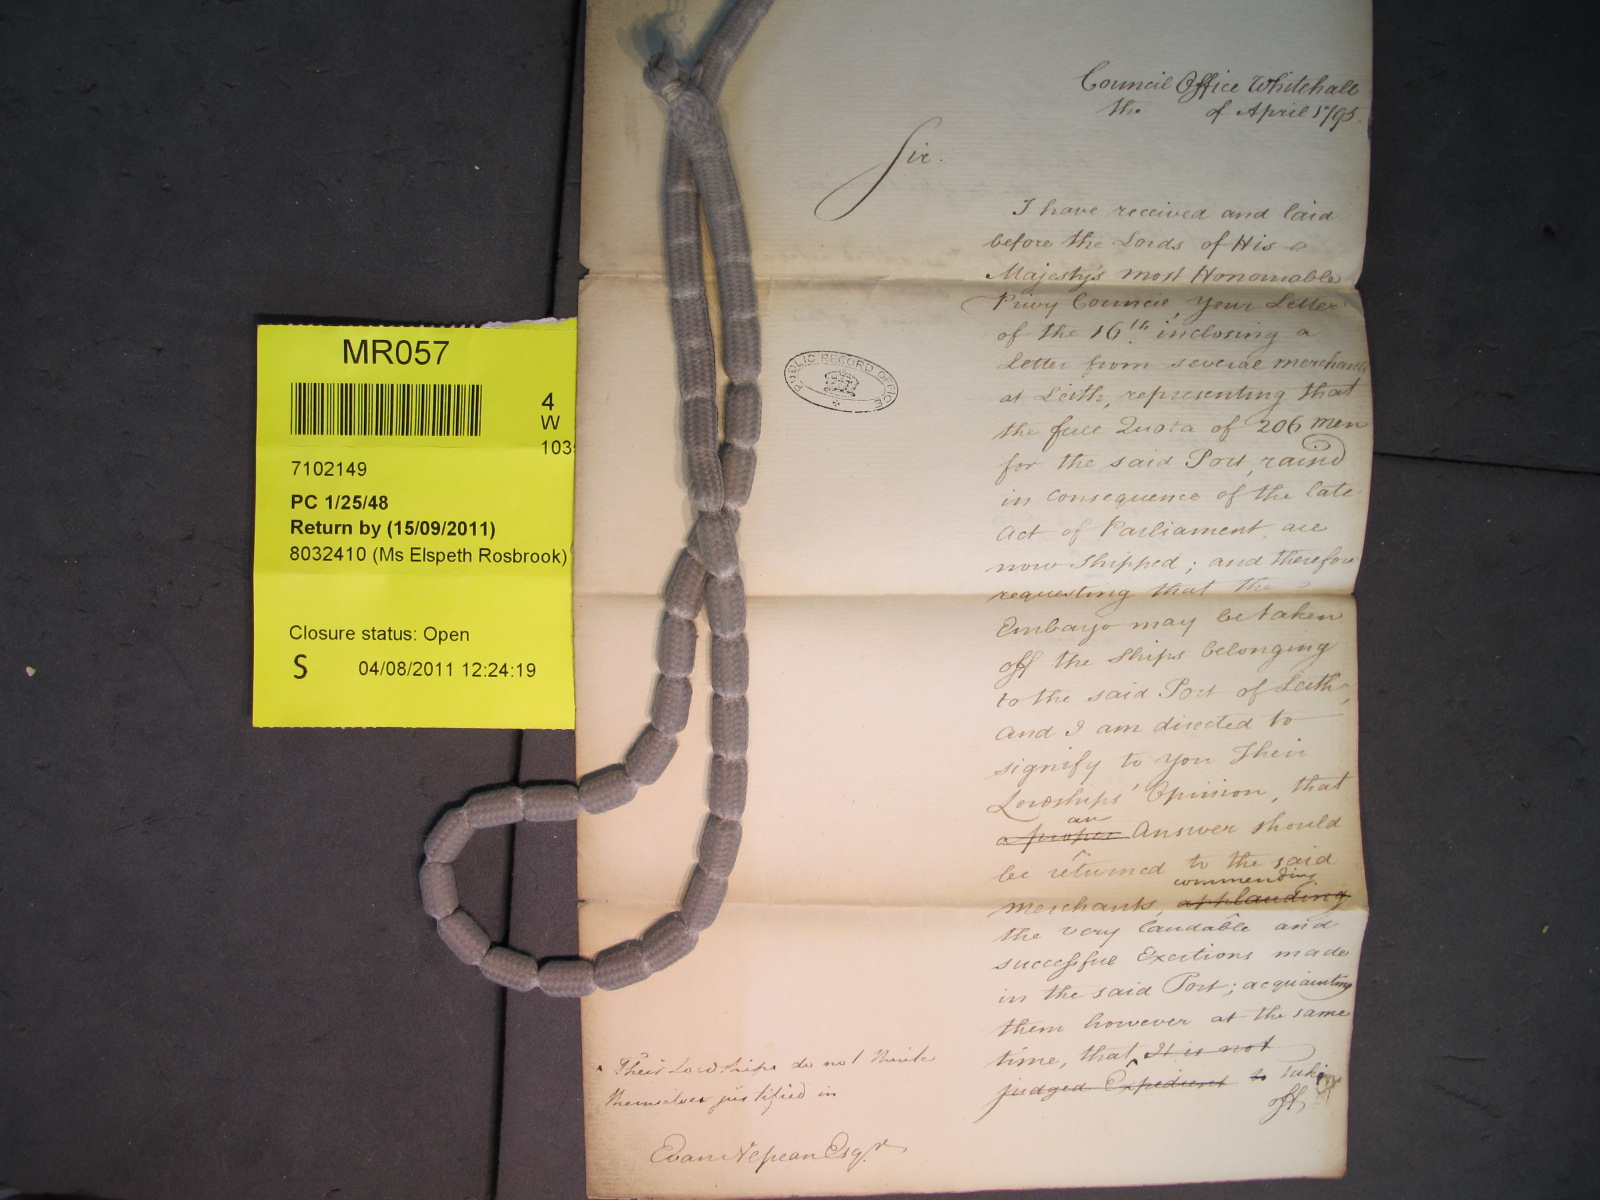 MR057
4
W
103
7102149
PC 1/25/48
Return by (15/09/2011)
8032410 (Ms Elspeth Rosbrook)
Closure status: Open
S 04/08/2011 12:24:19
PUBLIC RECORD OFFICE
Council Office Whitehall
the of April 1795.
Sir.
I have received and laid
before the Lords of His
Majesty's most Honourable
Privy Council, Your Letter
of the 16th inclosing a
Letter from several merchants
at Leith, representing that
the full Quota of 206 men
for the said Port, raised
in consequence of the late
Act of Parliament are
now Shipped; and therefore
requesting that the
Embargo may be taken
off the Ships belonging
to the said Port of Leith,
And I am directed to
signify to You Their
Lordships' Opinion, that
an
a proper Answer should
be returned to the said
commending
merchants, applauding
the very laudable and
successful Exertions made
in the said Port; acquainting
them however at the same
time, that ^ It is not
judged Expedient to Taking
off
^ Their Lordships do not think
themselves justified in
Evan Nepean Esqr